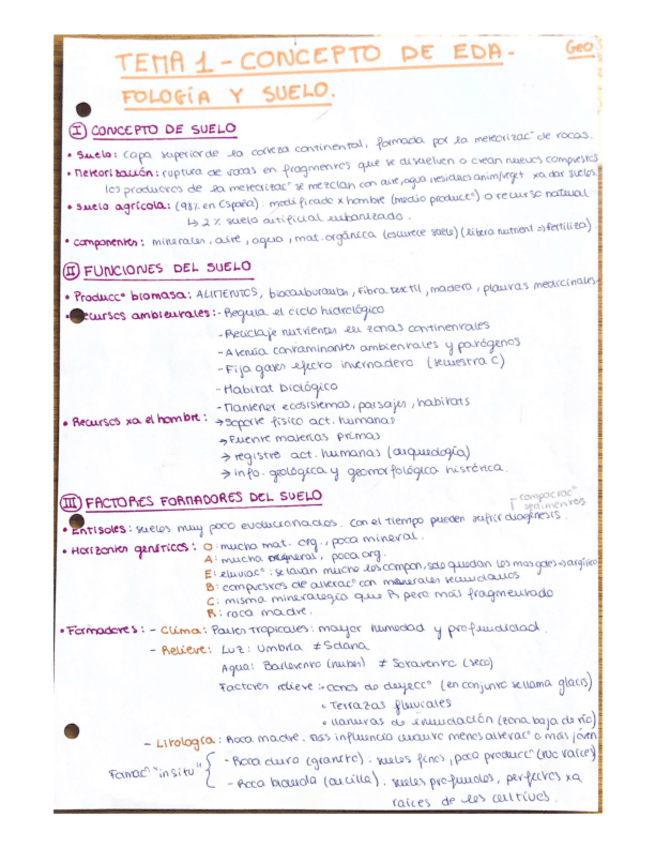 TEMA 1 - CONCEPTO DE EDA-
Geo
FOLOGÍA Y SUELO.
I CONCEPTO DE SUELO
• Suelo: capa superior de la corteza continental, formada por la meteorizacº de rocas.
• Meteorización: ruptura de rocas en fragmentos que se disuelven o crean nuevos compuestos
los productos de la meteorizacº se mezclan con aire, agua, residuos anim/veget xa dar suelos
• Suelo agrícola: (98% en España): modificado x hombre (medio productº) o recurso natural
↳ 2% suelo artificial urbanizado.
• Componentes: minerales, aire, agua, mat. orgánica (oscurece suelo) (libera nutrient ⇒ fertiliza)
II FUNCIONES DEL SUELO
• Produccº biomasa: ALIMENTOS, biocarburantes, fibra textil, madera, plantas medicinales.
• ecursos ambientales: - Regula el ciclo hidrológico
- Reciclaje nutrientes en zonas continentales
- Atenúa contaminantes ambientales y patógenos
- Fija gases efecto invernadero (secuestra C)
- Habitat biológico
- Mantener ecosistemas, paisajes, habitats
• Recursos xa el hombre: → Soporte físico act. humanas
→ Fuente materias primas
→ registro act. humanas (arqueología)
→ info. geológica y geomorfológica histórica.
III FACTORES FORMADORES DEL SUELO
compactacº
sedimentos
• Entisoles: suelos muy poco evolucionados. Con el tiempo pueden sufrir diagénesis.
• Horizontes genéticos: O: mucha mat. org., poca mineral.
A: mucha mineral, poca org.
E: eluviacº: se lavan mucho los compon, solo quedan los mas gdes ⇒
B: compuestos de alteracº con minerales secundarios
C: misma mineralogía que R pero más fragmentado
R: roca madre.
• Formadores: - Clima: Países Tropicales: mayor humedad y profundidad.
- Relieve: Luz: Umbría ≠ Solana
Agua: Barlovento (nubes) ≠ Sotavento (seco)
Factores relieve: • conos de deyeccº (en conjunto se llama glacis)
• Terrazas fluviales
• Llanuras de inundación (zona baja de río)
- Litología: Roca madre. Más influencia cuanto menos alteracº o más joven
Formacº "in situ" { - Roca dura (granito): suelos finos, poca productº (no raíces)
- Roca blanda (arcilla): suelos profundos, perfectos xa
raíces de los cultivos.